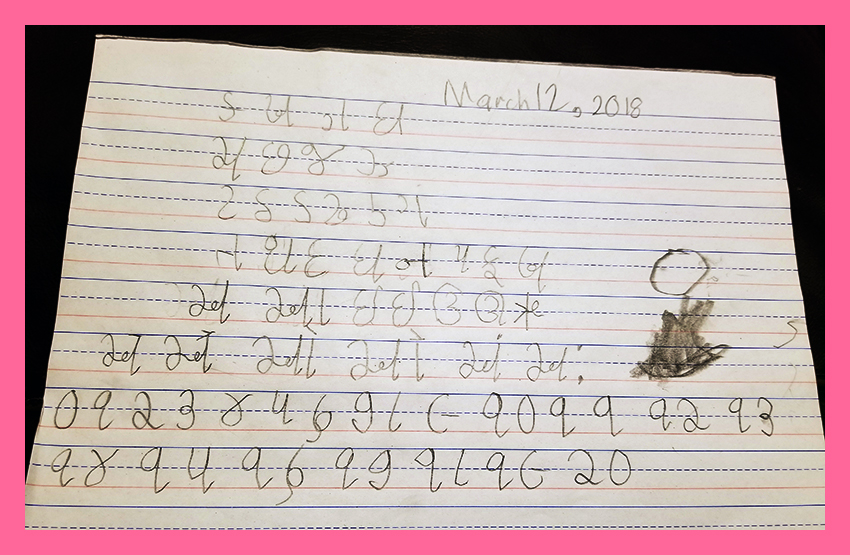 March 12, 2018
ક ખ ગ ઘ
ચ છ જ ઝ
ટ ઠ ડ ઢ
ત થ દ ધ ન પ ફ બ
અ આ ઇ ઈ ઉ ઊ ઋ
એ ઐ ઓ ઔ અં અઃ
૦ ૧ ૨ ૩ ૪ ૫ ૬ ૭ ૮ ૯ ૧૦ ૧૧ ૧૨ ૧૩
૧૪ ૧૫ ૧૬ ૧૭ ૧૮ ૧૯ ૨૦